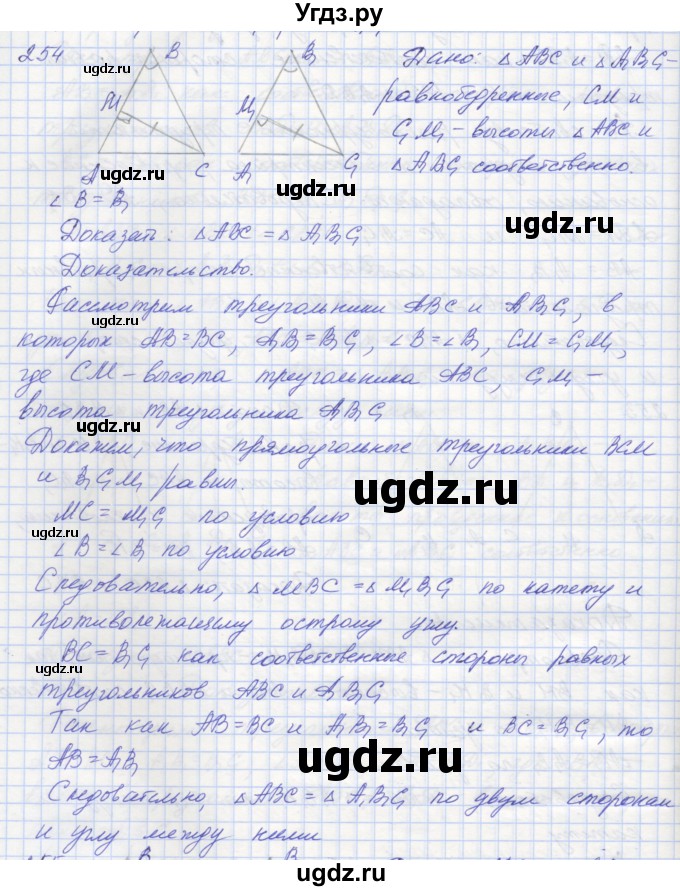 Угдз.ру
254
B
B₁
Дано: △ ABC и △ A₁B₁C₁ –
ugdz.ru
M
M₁
равнобедренные, CM и
C₁M₁ – высоты △ ABC и
A
C
A₁
C₁
△ A₁B₁C₁ соответственно.
ugdz.ru
ugdz.ru
∠ B = B₁
ugdz.ru
Доказать: △ ABC = △ A₁B₁C₁
Доказательство.
Рассмотрим треугольники ABC и A₁B₁C₁, в
ugdz.ru
которых AB = BC, A₁B₁ = B₁C₁, ∠B = ∠B₁, CM = C₁M₁,
где CM – высота треугольника ABC, C₁M₁ –
высота треугольника A₁B₁C₁
ugdz.ru
Докажем, что прямоугольные треугольники BCM
и B₁C₁M₁ равны.
ugdz.ru
MC = M₁C₁ по условию
ugdz.ru
∠ B = ∠ B₁ по условию
Следовательно, △ MBC = △ M₁B₁C₁ по катету и
противолежащему острому углу
BC = B₁C₁ как соответственные стороны равных
ugdz.ru
треугольников ABC и A₁B₁C₁
Так как AB = BC и A₁B₁ = B₁C₁ и BC = B₁C₁, то
AB = A₁B₁
ugdz.ru
Следовательно, △ ABC = △ A₁B₁C₁ по двум сторонам
ugdz.ru
и углу между ними